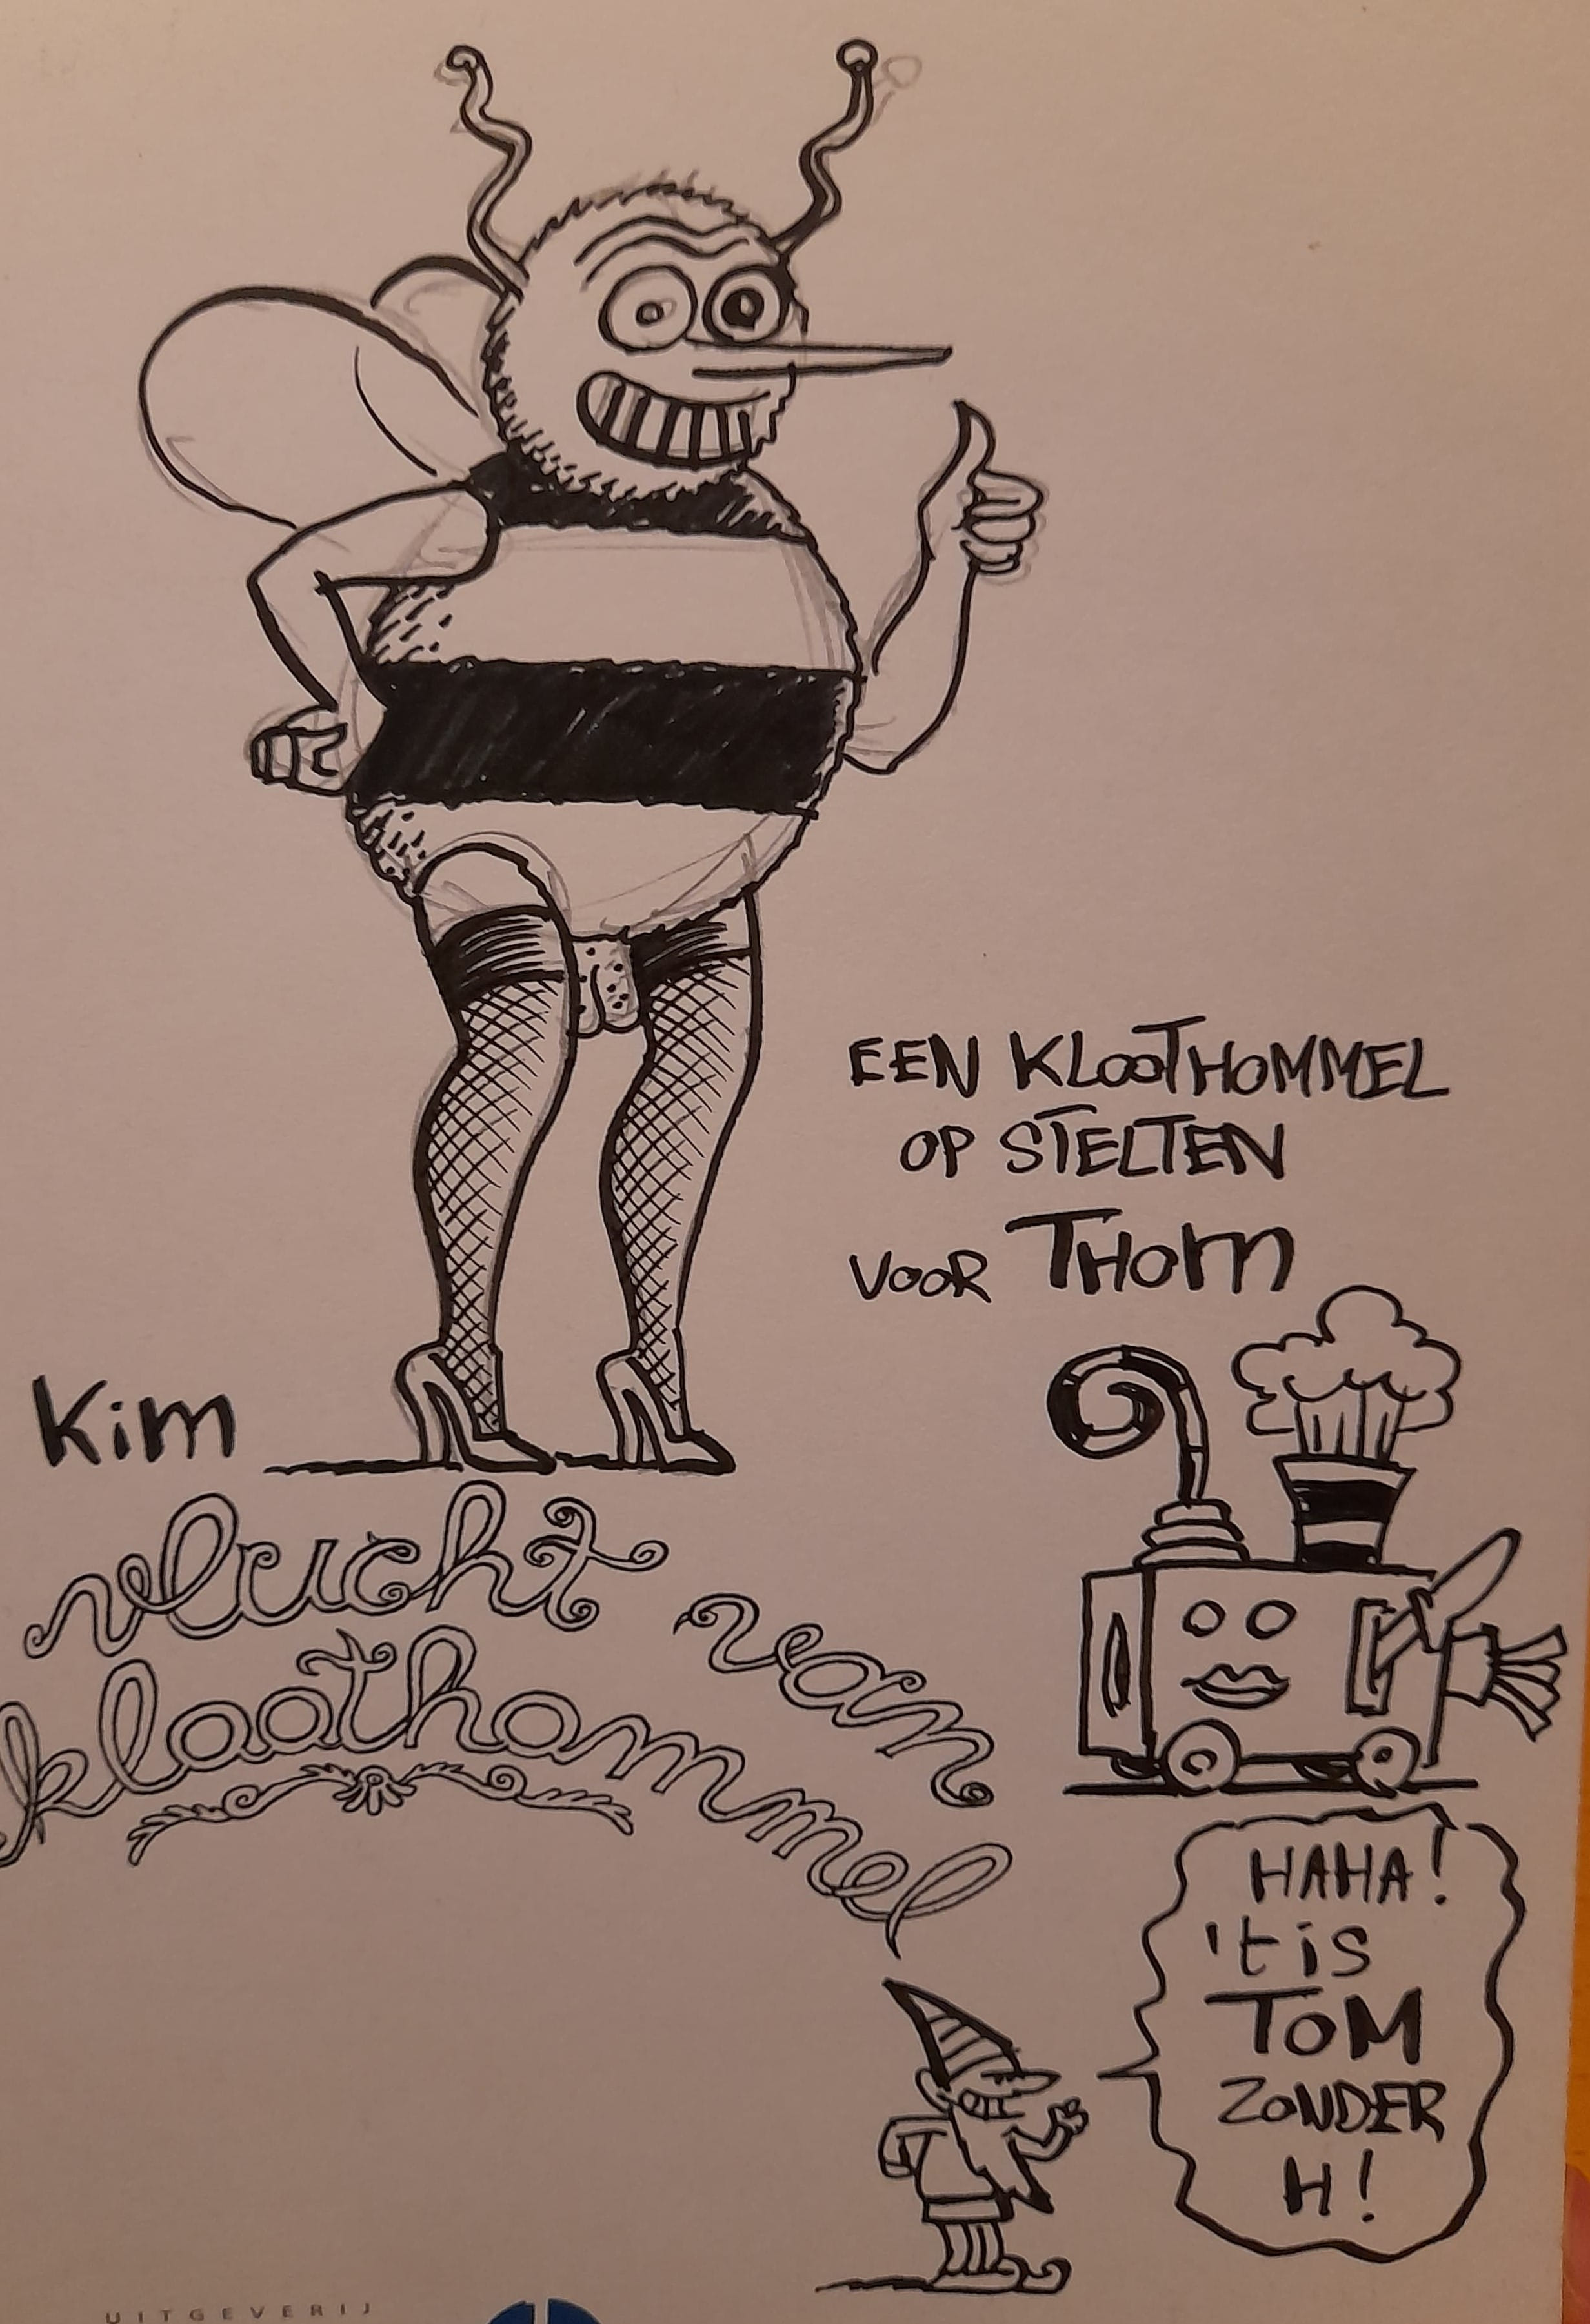 EEN KLOOTHOMMEL
OP STELTEN
VOOR THOM
Kim
vlucht van
kloothommel
HAHA!
't is
TOM
ZONDER
H!
UITGEVERIJ